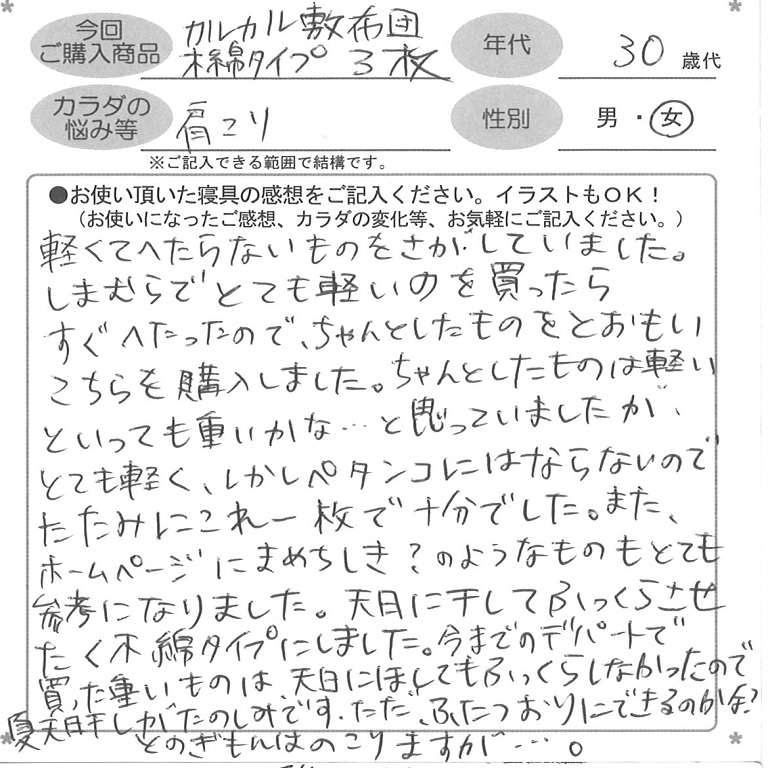 今回
ご購入商品
カルカル敷布団
木綿タイプ 3枚
年代
30 歳代
カラダの
悩み等
肩こり
性別
男・女
※ご記入できる範囲で結構です。
●お使い頂いた寝具の感想をご記入ください。イラストもOK!
(お使いになったご感想、カラダの変化等、お気軽にご記入ください。)
軽くてへたらないものをさがしていました。
しまむらでとても軽いのを買ったら
すぐへたったので、ちゃんとしたものをとおもい
こちらを購入しました。ちゃんとしたものは軽い
といっても重いかな…と思っていましたが、
とても軽く、しかしペタンコにはならないので
たたみにこれ一枚で十分でした。また、
ホームページにまめちしき?のようなものもとても
参考になりました。天日に干してふっくらさせ
たく木綿タイプにしました。今までのデパートで
買った重いものは、天日にほしてもふっくらしなかったので
夏天日干しがたのしみです。ただ、ふたつおりにできるのかな?
とのぎもんはのこりますが…。